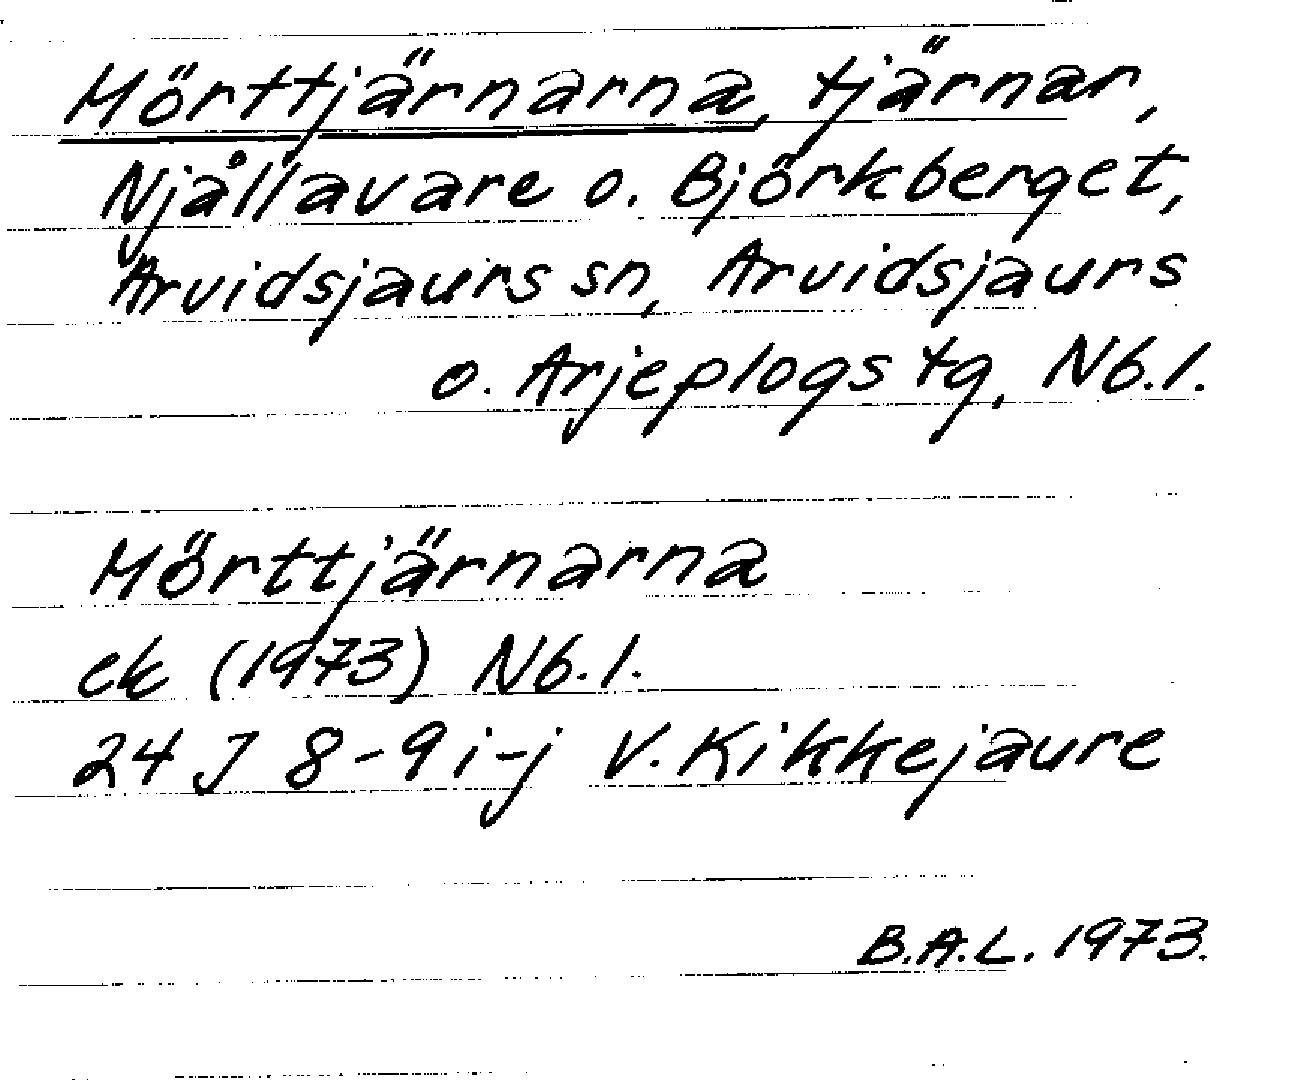 Mörttjärnarna, tjärnar,
Njållavare o. Björkberget,
Arvidsjaurs sn, Arvidsjaurs
o. Arjeplogs tg, Nb.l.
Mörttjärnarna
ek (1973) Nb.l.
24 J 8-9 i-j V. Kikkejaure
B.A.L. 1973.